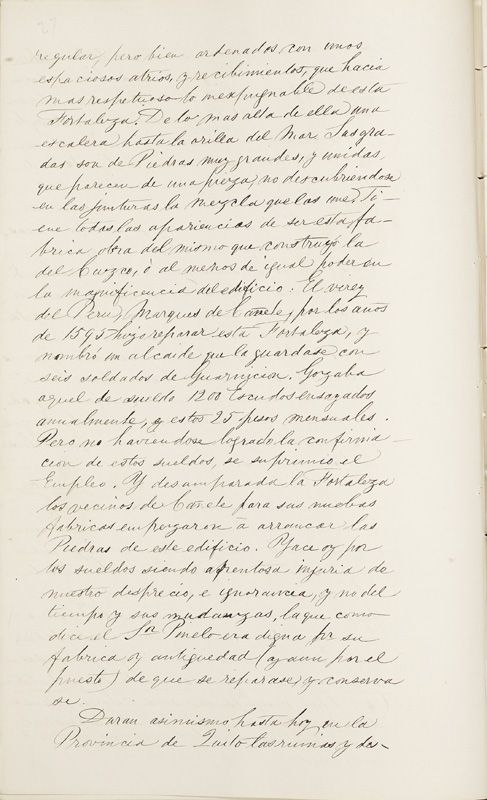 27
regular, pero bien ordenados con unos
espaciosos atrios, y recibimientos, que hacia
mas respetuoso lo inexpugnable de esta
Fortaleza. De lo mas alta de ella una
escalera hasta la orilla del Mar. Las gra-
das son de Piedras muy grandes, y unidas,
que parecen de una pieza, no descubriendose
en las junturas la mezcla que las une. Ti-
ene todas las apariencias de ser esta fa-
brica obra del mismo que construyó la
del Cuzco, ó al menos de igual poder en
la magnificencia del edificio. El virey
del Peru, Marques de Cañete, por los años
de 1595 hizo reparar esta Fortaleza, y
nombró un alcaide que la guardase con
seis soldados de Guarnicion. Gozaba
aquel de sueldo 1200 Escudos ensayados
anualmente, y estos 25 pesos mensuales.
Pero no haviendose logrado la confirma-
cion de estos sueldos, se suprimio el
Empleo. Y desamparada la Fortaleza
los vecinos de Cañete para sus nuebas
fabricas empezaron à arrancar las
Piedras de este edificio. Yace oy por
los sueldos siendo afrentosa injuria de
nuestro desprecio, e ignorancia, y no del
tiempo y sus mudanzas, la que como
dice el Sor Pinelo era digna pr su
fabrica y antiguedad (y aun por el
puesto) de que se reparase, y conserva
se.
Duran asimismo hasta hoy en la
Provincia de Quito las ruinas y des-